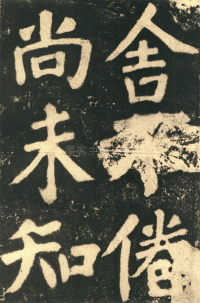 舍不倦
尚未知